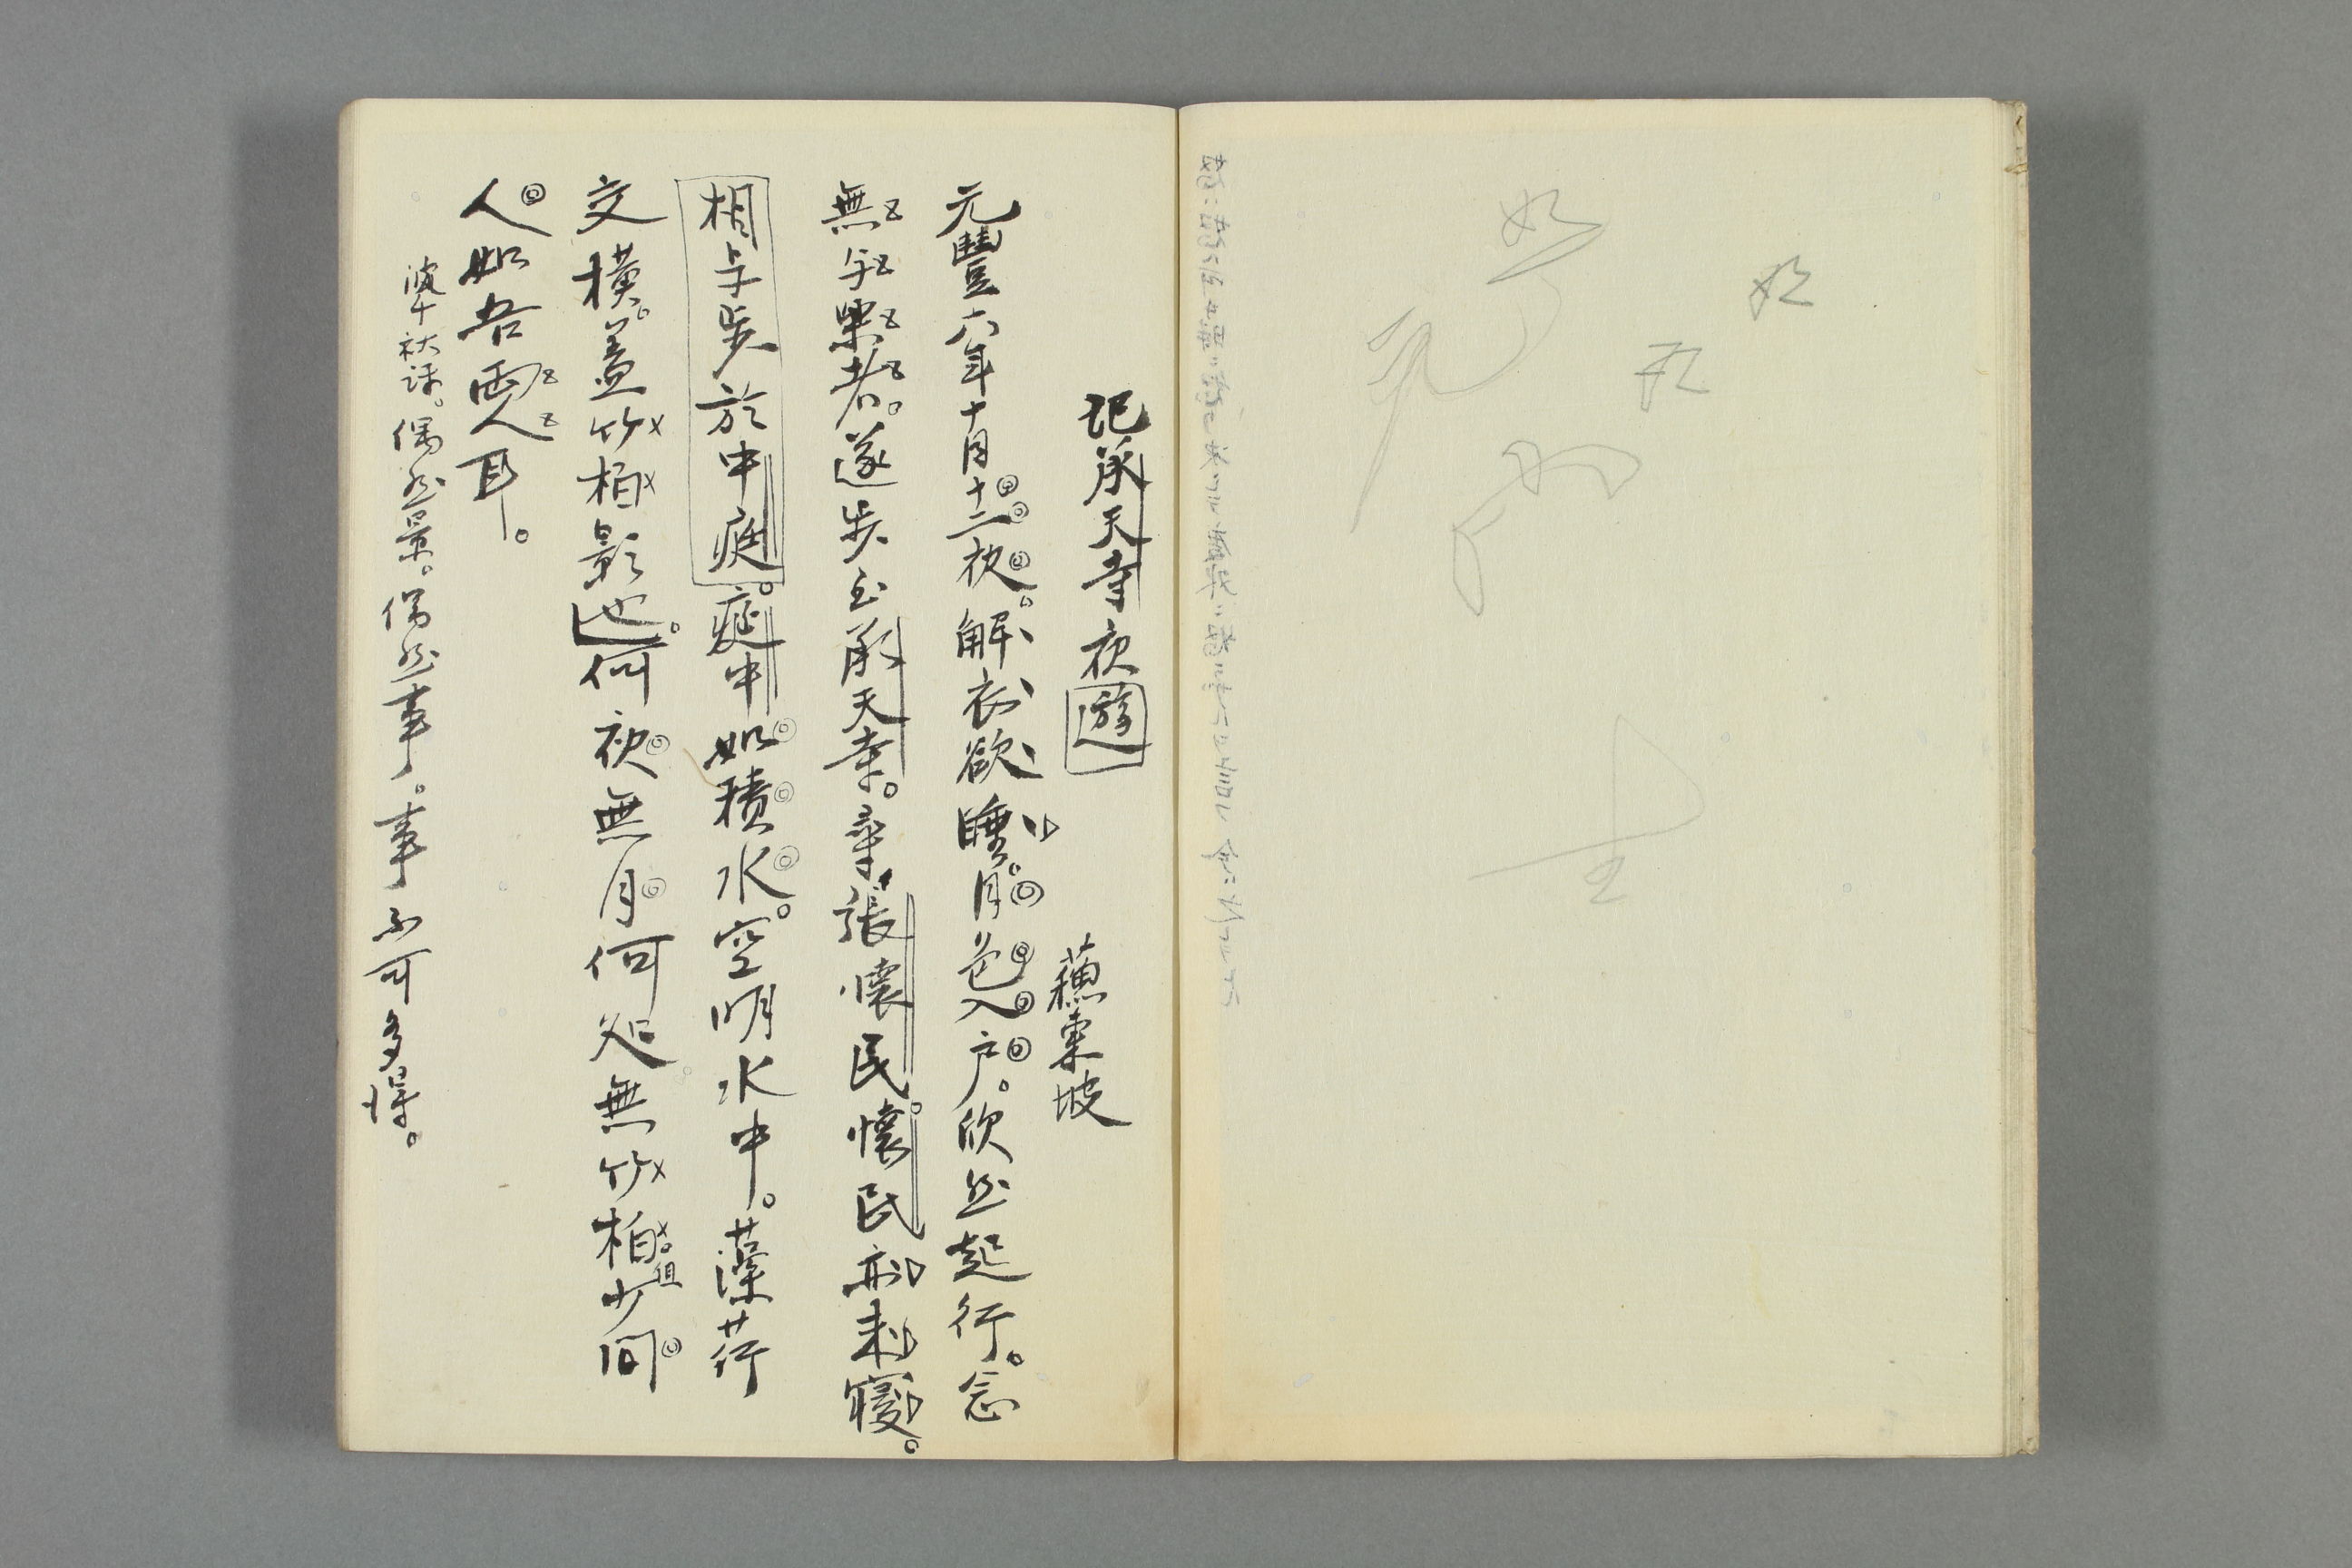 記承天寺夜遊
蘓東坡
元豐六年十月十二夜。解衣欲睡。月色入户。欣然起行。念
無与樂者。遂步至承天寺。尋張懷民。懷民亦未寢。
相与步於中庭。庭中如積水。空明水中。藻荇
交橫。蓋竹柏影也。何夜無月何処無竹柏。但少间
人如吾两人耳。
偶然景。偶然事。事不可多得。